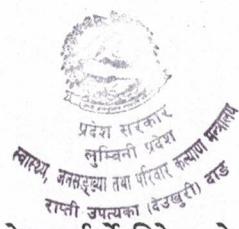 प्रदेश सरकार
लुम्बिनी प्रदेश
स्वास्थ्य, जनसङ्ख्या तथा परिवार कल्याण मन्त्रालय
राप्ती उपत्यका (देउखुरी) दाङ